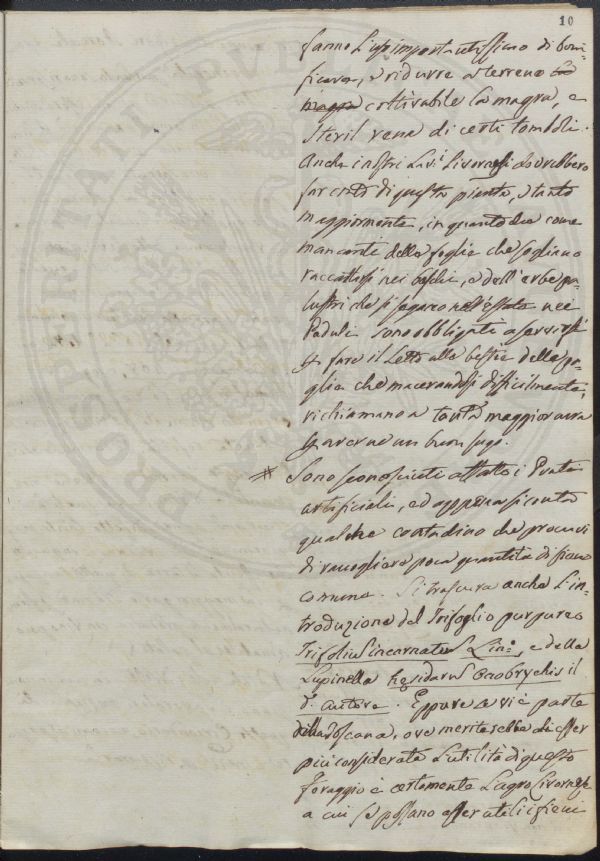 10
fanno l'uso importantissimo di boni-
ficare, e ridurre a terreno la
magra coltivabile la magra, e
steril rena di certi tomboli.
Anche i nostri Livornesi dovrebbero
far conto di questa pianta, e tanto
maggiormente, in quanto che come
mancanti delle foglie che sogliono
raccattarsi nei boschi, e dell'erbe pa-
lustri che si segano nell'estate nei
Paduli sono obbligati a servirsi
p fare il Letto alle bestie della pa-
glia che macerandosi difficilmente,
richiamano a tanta maggior cura
p averne un buon sugo.
# Sono sconosciuti affatto i Prati
artificiali, ed appena si conta
qualche contadino che procuri
di raccogliere poca quantità di fieno
comune. Si trascura anche l'in-
troduzione del Trifoglio purpureo
Trifolium incarnatum Lin:, e della
Lupinella Hedisarum Onobrychis il
d. autore. Eppure se vi è parte
della Toscana, ove meriterebbe di esser
più considerata l'utilità di questo
foraggio è certamente l'agro Livornese
a cui se possano esser utili i fieni
PROSPERITATI PVB